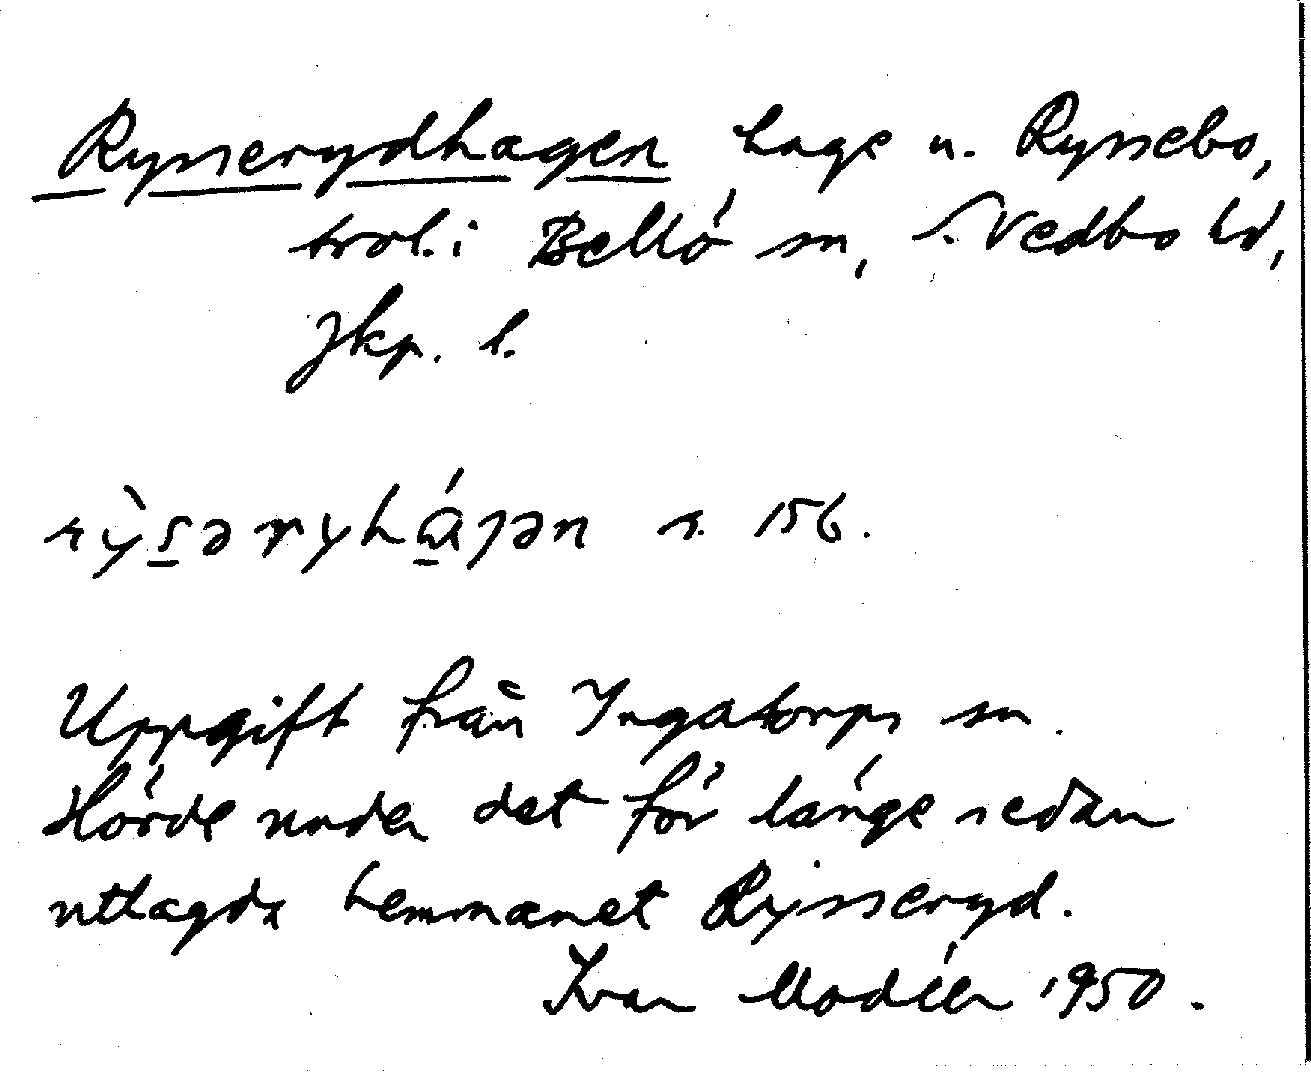 Rysserydhagen hage u. Ryssebo,
trol. i Bellö sn, S. Vedbo hd,
Jkp. l.
s. 156.
Uppgift från Ingatorps sn.
Hörde under det för länge sedan
utlagda hemmanet Rysseryd.
Ivar Modéer 1950.